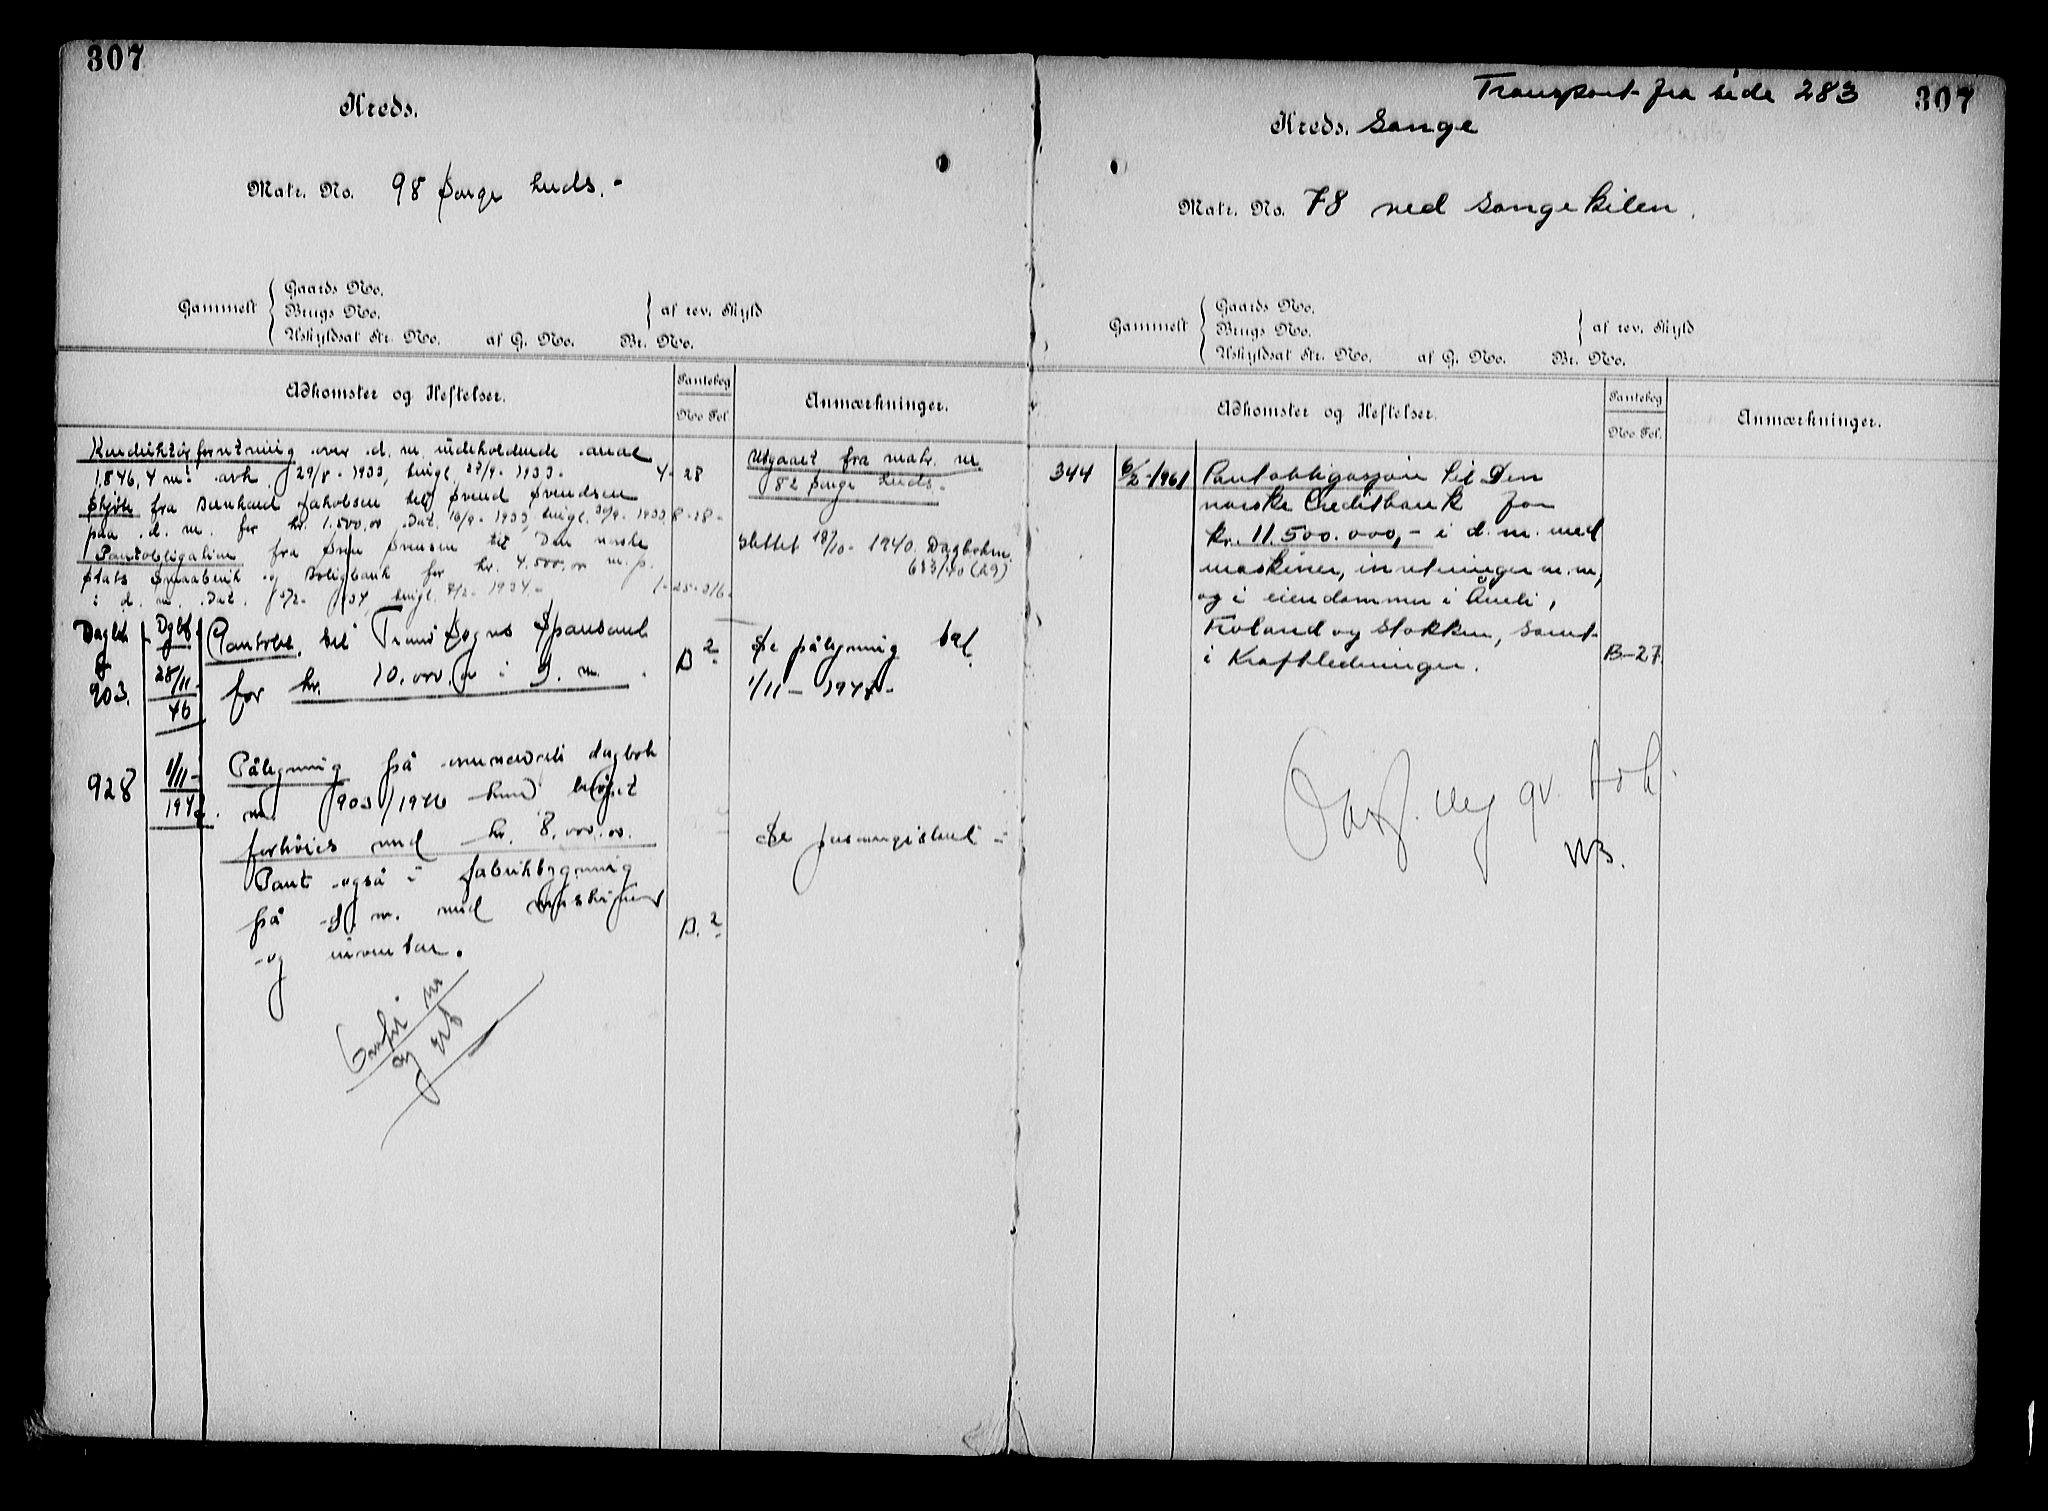 307
Kreds.
Matr. No. 98 Songe
Gammelt
Gaards No.
Brugs No.
Uskyldsat Str. No. af G. No. Br. No.
af rev. Skyld
Adkomster og Heftelser.
Pantebog
No Fol.
Anmærkninger.
Konduktørforretning over d. m. indeholdende areal
1,846,4 m². avh. 29/8 - 1933, tingl. 27/9 - 1933 - 4 - 28
Skjøte fra Bernhard Jakobsen til Svend Svendsen
paa d. m. for kr. 1.500,00 Dat. 16/9 - 1933, tingl. 30/9 - 1933 8 - 28 -
Pantobligation fra til Den norske
Stats Smaabruk og Boligbank for kr. 4.500,00 m. p.
i d. m. Dat. 1934, tingl. 8/2 - 1934 - 1 - 25 - 316 -
Utgaaet fra matr. nr
82 Songe
slettet 18/10 - 1940. Dagboknr.
633/40 (29)
Dagbok Dgbf.
903. 28/11 - 46 Pantobl. til Sogns Spareank
for kr. 10.000,00 i d. m. B 2
Se påtegning tgl.
1/11 - 1948 -
928 1/11 - 1948. Påtegning på dagbok
nr. 903/1946 beløpet
forhøies med kr. 8.000,00.
Pant også i fabrikbygning
på d. m. med maskiner
og inventar. B. 2
Se
og
Transport fra side 283 307
Kreds. Songe
Matr. No. 78 ved Songekilen.
Gammelt
Gaards No.
Brugs No.
Uskyldsat Str. No. af G. No. Br. No.
af rev. Skyld
Adkomster og Heftelser.
Pantebog
No Fol.
Anmærkninger.
344 6/2 - 1961 Pantobligasjon til Den
norske Creditbank for
kr. 11.500.000,- i d. m. med
maskiner, innretninger m.m,
og i eiendommer i Åmli,
Froland og Stokken, samt
i Kraftledninger. B - 27.